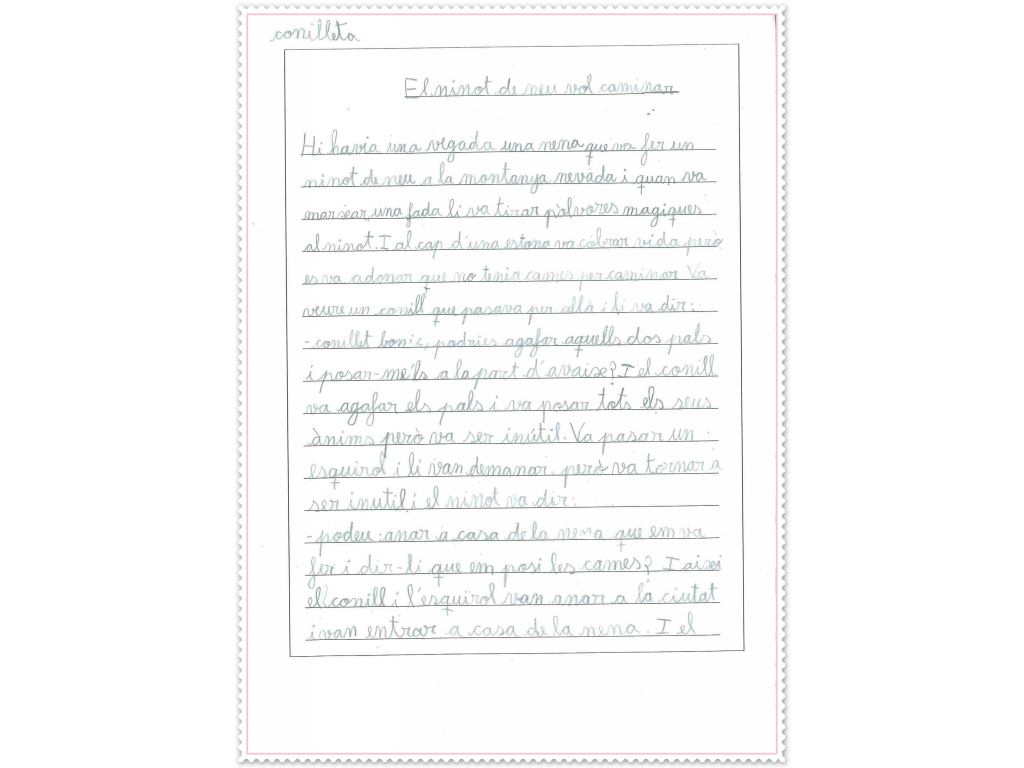 conilleta
El ninot de neu vol caminar
Hi havia una vegada una nena que va fer un
ninot de neu a la montanya nevada i quan va
marxar una fada li va tirar pòlvores magiques
al ninot. I al cap d'una estona va cobrar vida però
es va adonar que no tenia cames per caminar Va
veure un conill que pasava per allà i li va dir:
-conillet bonic, podries agafar aquells dos pals
i posar-me'ls a la part d'avaix? I el conill
va agafar els pals i va posar tots els seus
ànims però va ser inútil. Va pasar un
esquirol i li van demanar però va tornar a
ser inutil i el ninot va dir:
-podeu anar a casa de la nena que em va
fer i dir-li que em posi les cames? I aixi
el conill i l'esquirol van anar a la ciutat
i van entrar a casa de la nena. I el